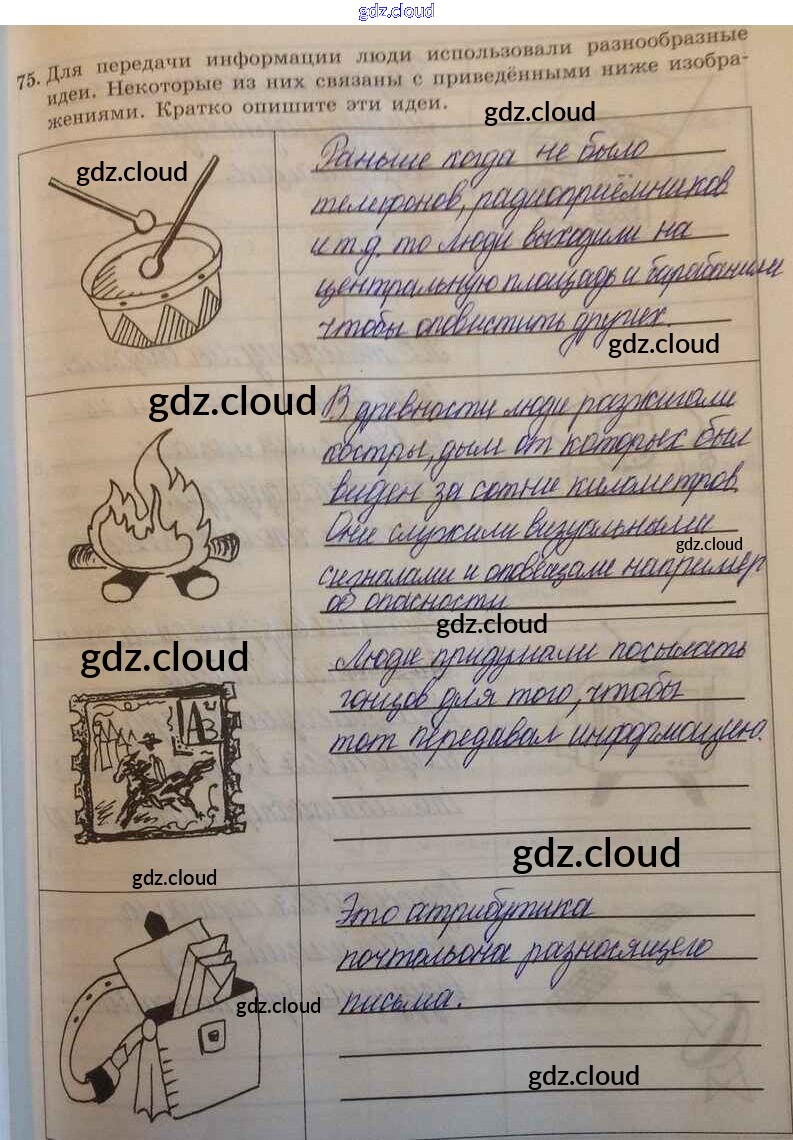 gdz.cloud
75. Для передачи информации люди использовали разнообразные
идеи. Некоторые из них связаны с приведёнными ниже изобра-
жениями. Кратко опишите эти идеи.
gdz.cloud
gdz.cloud
Раньше когда не было
телефонов, радиоприёмников
и т.д. то люди выходили на
центральную площадь и барабанили
чтобы оповистить других.
gdz.cloud
gdz.cloud
В древности люди разжигали
костры, дым от которых был
виден за сотни километров.
Они служили визуальными
gdz.cloud
сигналами и оповещали например
об опасности
gdz.cloud
gdz.cloud
Люди придумали посылать
гонцов для того, чтобы
тот передавал информацию.
АЗ
gdz.cloud
gdz.cloud
Это атрибутика
почтольона разносящего
письма.
gdz.cloud
gdz.cloud